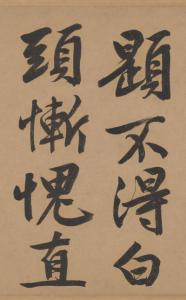 顕不得白
頭慚愧直